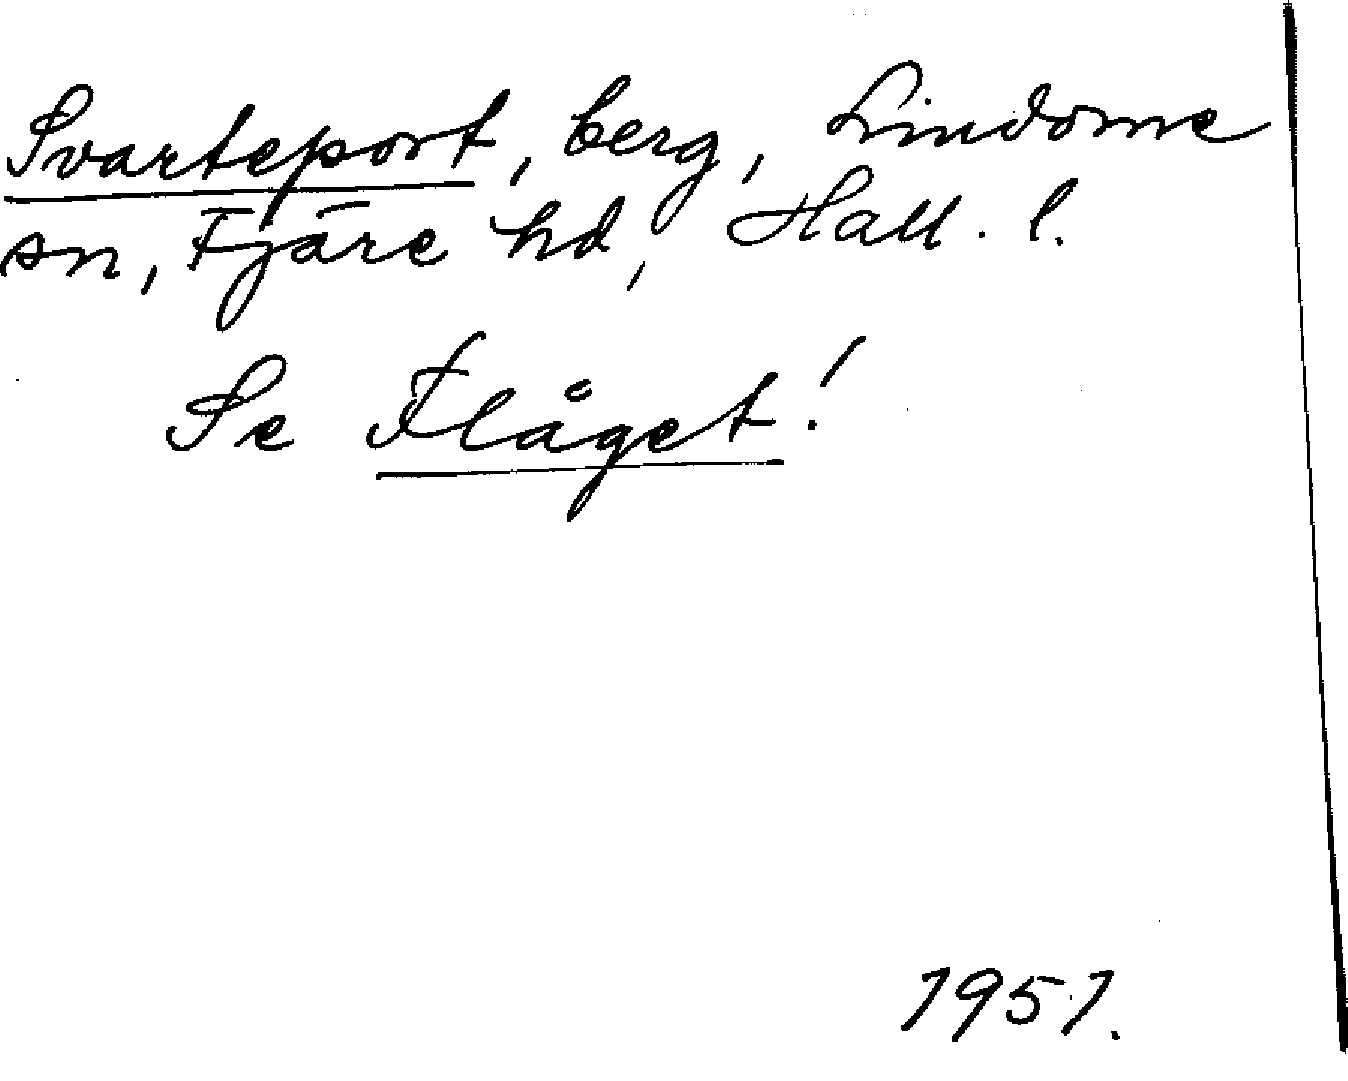 Svarteport, berg, Lindome
sn, Fjäre hd, Hall. l.
Se Flåget!
1951.